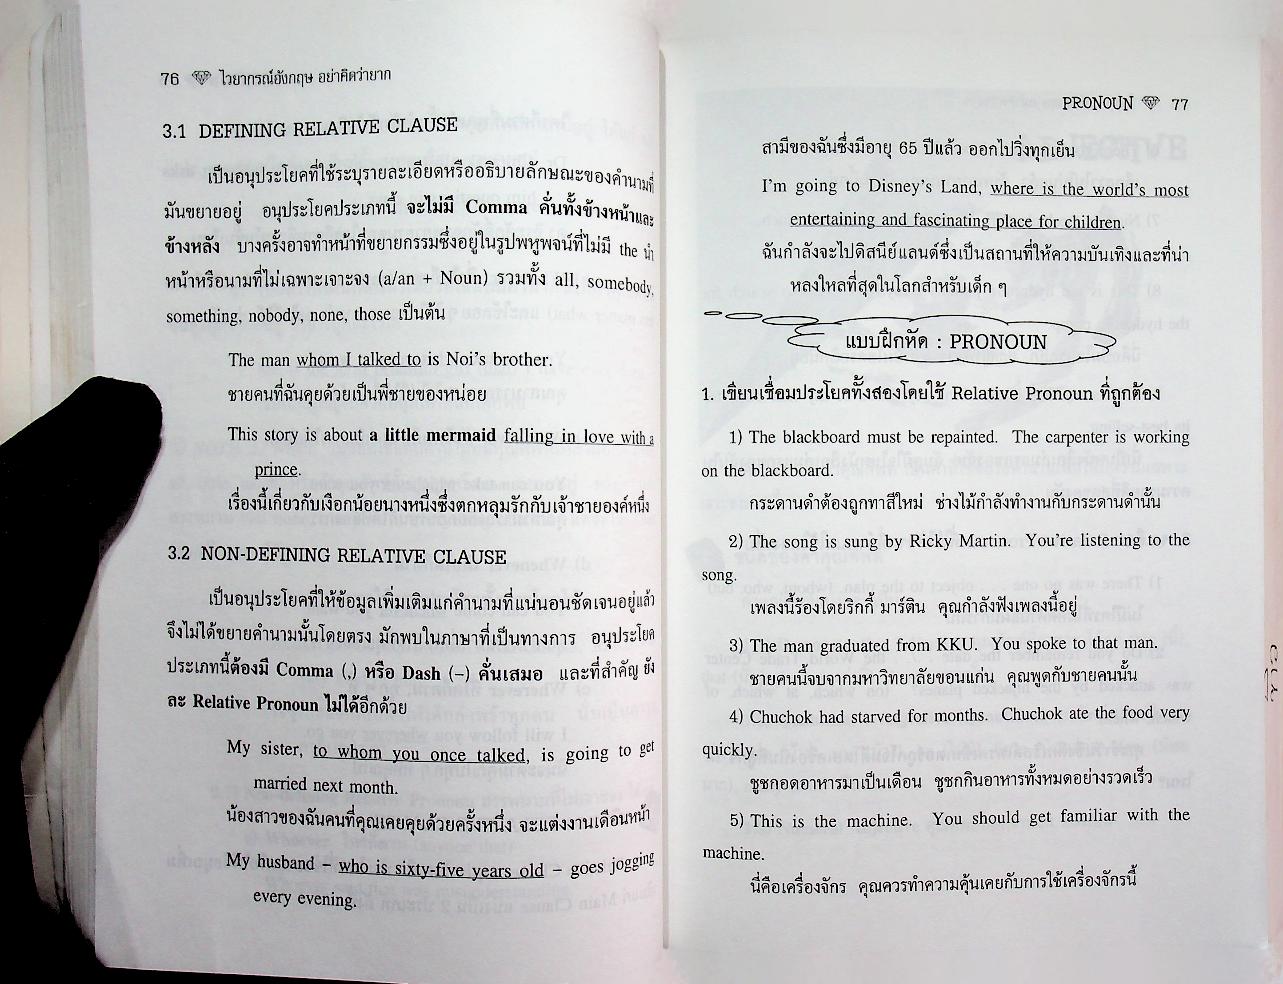 76 ไวยากรณ์อังกฤษ อย่าคิดว่ายาก
3.1 DEFINING RELATIVE CLAUSE
เป็นอนุประโยคที่ใช้ระบุรายละเอียดหรืออธิบายลักษณะของคำนามที่
มันขยายอยู่ อนุประโยคประเภทนี้ จะไม่มี Comma คั่นทั้งข้างหน้าและ
ข้างหลัง บางครั้งอาจทำหน้าที่ขยายกรรมซึ่งอยู่ในรูปพหูพจน์ที่ไม่มี the นำ
หน้าหรือนามที่ไม่เฉพาะเจาะจง (a/an + Noun) รวมทั้ง all, somebody,
something, nobody, none, those เป็นต้น
The man whom I talked to is Noi's brother.
ชายคนที่ฉันคุยด้วยเป็นพี่ชายของหน่อย
This story is about a little mermaid falling in love with a
prince.
เรื่องนี้เกี่ยวกับเงือกน้อยนางหนึ่งซึ่งตกหลุมรักกับเจ้าชายองค์หนึ่ง
3.2 NON-DEFINING RELATIVE CLAUSE
เป็นอนุประโยคที่ให้ข้อมูลเพิ่มเติมแก่คำนามที่แน่นอนชัดเจนอยู่แล้ว
จึงไม่ได้ขยายคำนามนั้นโดยตรง มักพบในภาษาที่เป็นทางการ อนุประโยค
ประเภทนี้ต้องมี Comma (,) หรือ Dash (–) คั่นเสมอ และที่สำคัญ ยัง
ละ Relative Pronoun ไม่ได้อีกด้วย
My sister, to whom you once talked, is going to get
married next month.
น้องสาวของฉันคนที่คุณเคยคุยด้วยครั้งหนึ่ง จะแต่งงานเดือนหน้า
My husband – who is sixty-five years old – goes jogging
every evening.
PRONOUN 77
สามีของฉันซึ่งมีอายุ 65 ปีแล้ว ออกไปวิ่งทุกเย็น
I'm going to Disney's Land, where is the world's most
entertaining and fascinating place for children.
ฉันกำลังจะไปดิสนีย์แลนด์ซึ่งเป็นสถานที่ให้ความบันเทิงและที่น่า
หลงใหลที่สุดในโลกสำหรับเด็ก ๆ
แบบฝึกหัด : PRONOUN
1. เขียนเชื่อมประโยคทั้งสองโดยใช้ Relative Pronoun ที่ถูกต้อง
1) The blackboard must be repainted. The carpenter is working
on the blackboard.
กระดานดำต้องถูกทาสีใหม่ ช่างไม้กำลังทำงานกับกระดานดำนั้น
2) The song is sung by Ricky Martin. You're listening to the
song.
เพลงนี้ร้องโดยริกกี้ มาร์ติน คุณกำลังฟังเพลงนี้อยู่
3) The man graduated from KKU. You spoke to that man.
ชายคนนี้จบจากมหาวิทยาลัยขอนแก่น คุณพูดกับชายคนนั้น
4) Chuchok had starved for months. Chuchok ate the food very
quickly.
ชูชกอดอาหารมาเป็นเดือน ชูชกกินอาหารทั้งหมดอย่างรวดเร็ว
5) This is the machine. You should get familiar with the
machine.
นี่คือเครื่องจักร คุณควรทำความคุ้นเคยกับการใช้เครื่องจักรนี้